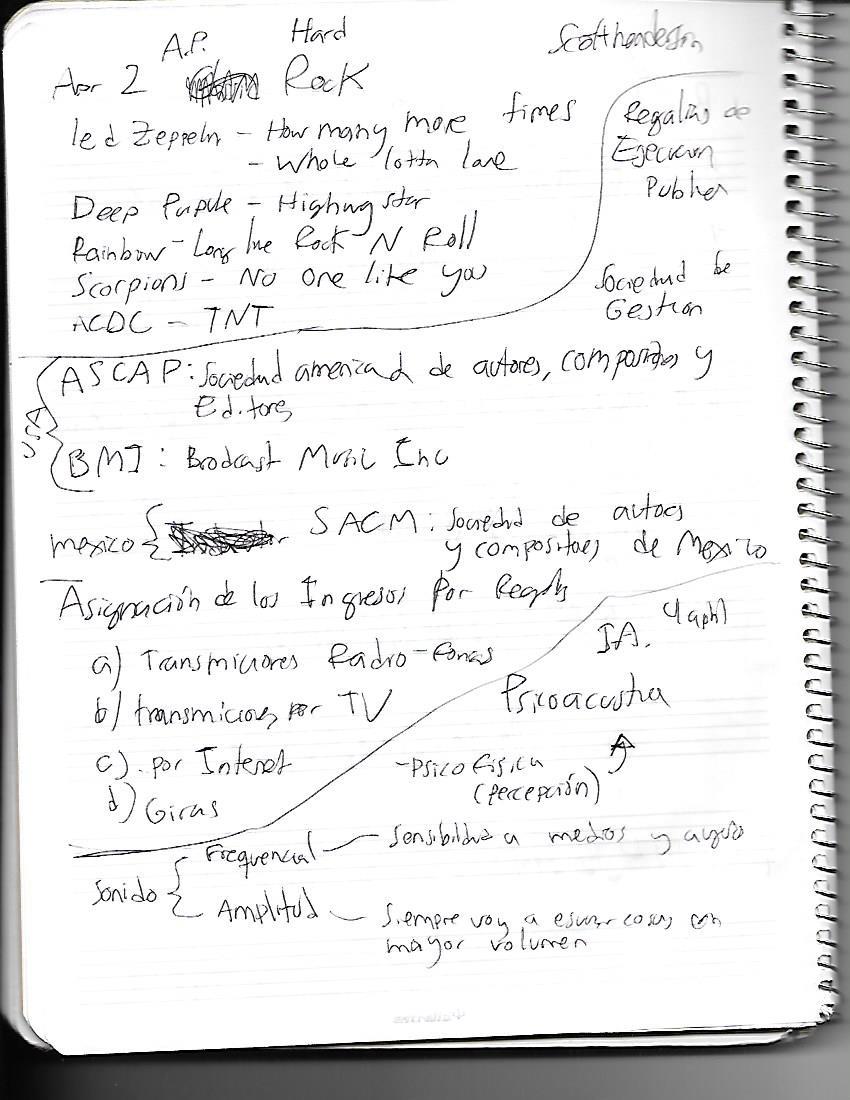 A.P. Hard
Scott henderson
Apr 2 Rock
led Zeppeln - How many more times
- Whole lotta love
Deep Purple - Highway star
Rainbow - Long live Rock N Roll
Scorpions - No one like you
ACDC - TNT
Regalias de
Ejecucion
Publica
Sociedad de
Gestion
USA
ASCAP: Sociedad americana de autores, compositores y
Editores
BMI: Brodcast Music Inc
mexico SACM: Sociedad de autores
y compositores de Mexico
Asignación de los Ingresos Por Regalias
a) Transmiciones Radio-
b) transmiciones por TV
c) por Internet
d) Giras
I.A.
Psicoacustica
- Psicofisica
(percepción)
Sonido
Frequencial - Sensibilidad a medios y agudo
Amplitud - Siempre voy a escuchar cosas con
mayor volumen